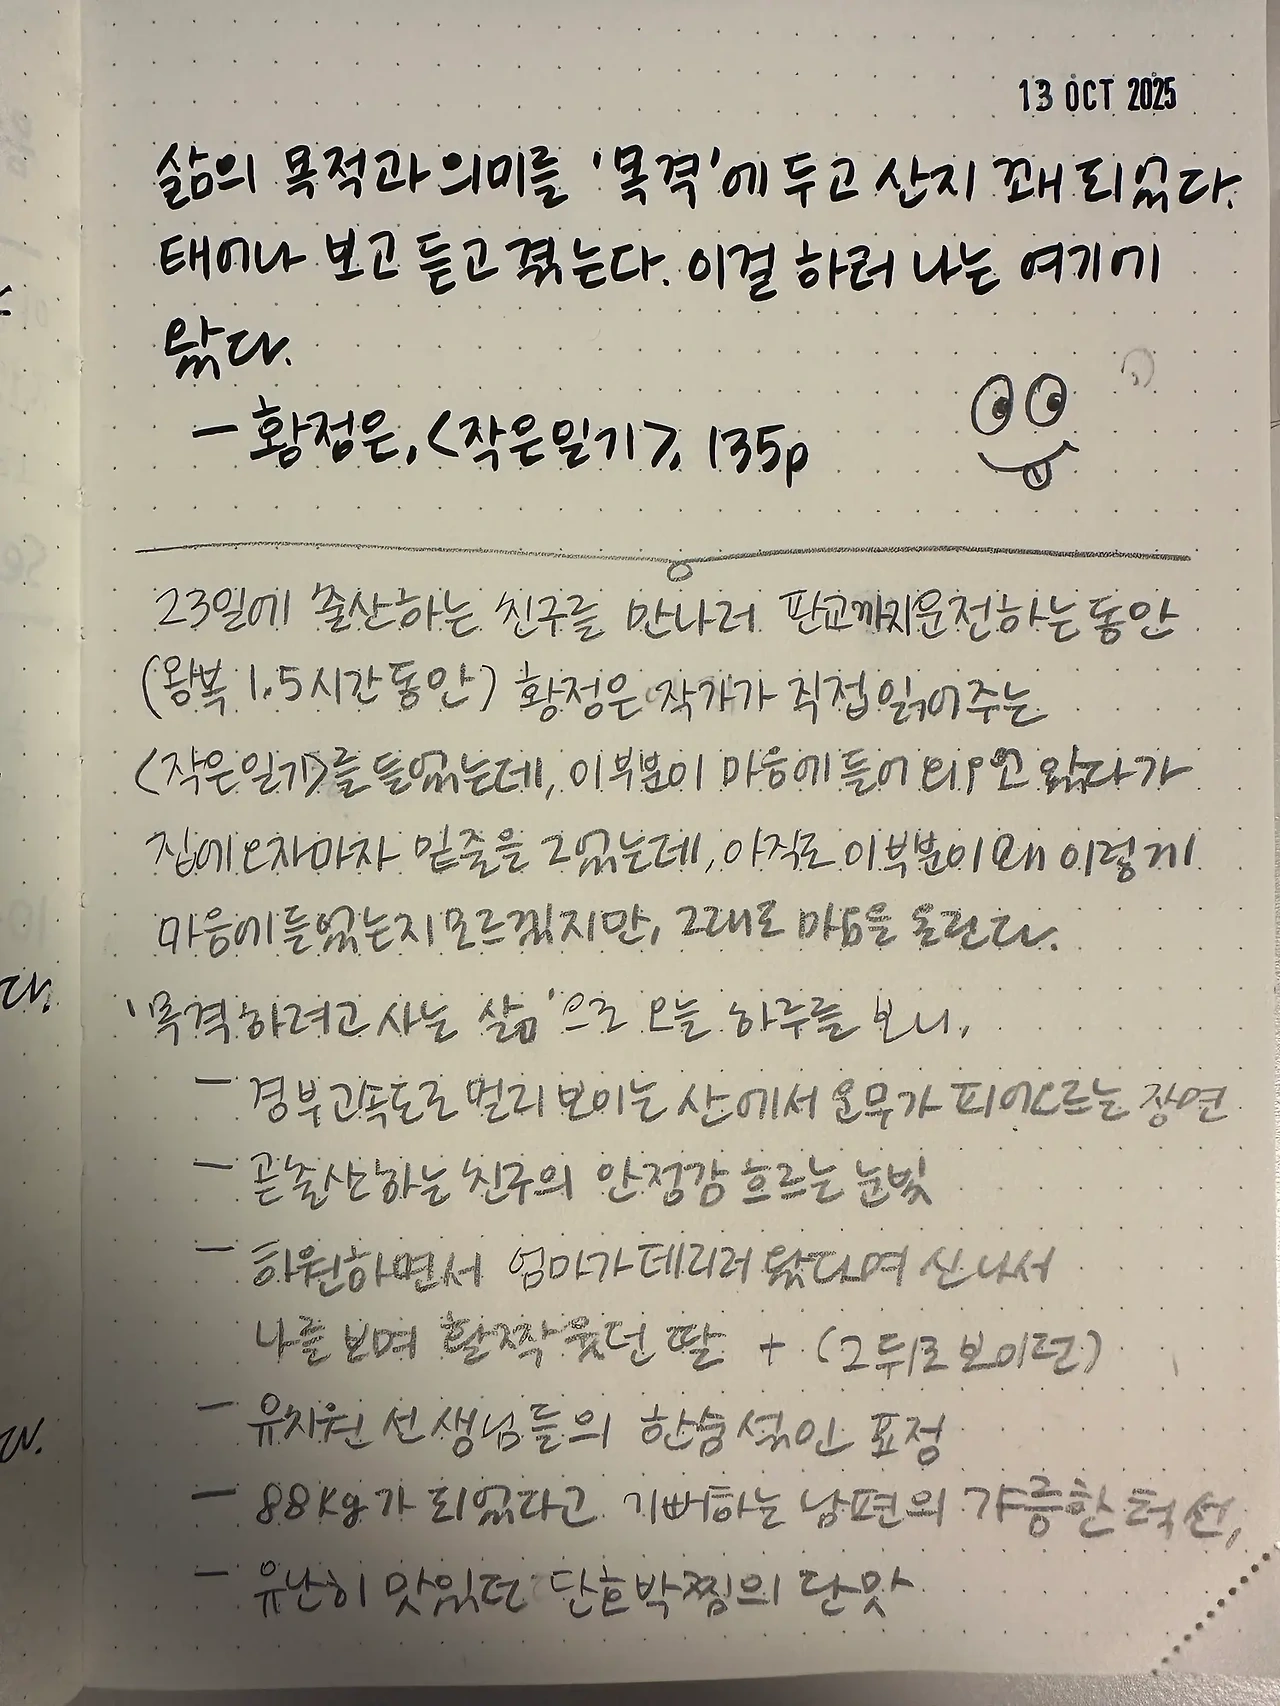 13 OCT 2025
삶의 목적과 의미를 '목격'에 두고 산지 꽤 되었다.
태어나 보고 듣고 겪는다. 이걸 하러 나는 여기에
왔다.
- 황정은, <작은일기>, 135p
23일에 출산하는 친구를 만나러 판교까지운전하는동안
(왕복 1.5시간동안) 황정은 작가가 직접읽어주는
<작은일기>를 들었는데, 이부분이 마음에들어 외우고 왔다가
집에오자마자 밑줄을 그었는데, 아직도 이부분이왜 이렇게
마음에들었는지모르겠지만, 그대로 마음을 울린다.
'목격하려고 사는 삶'으로 오늘 하루를 보니,
- 경부고속도로 멀리 보이는 산에서 운무가 피어오르는 장면
- 곧출산하는 친구의 안정감 흐르는 눈빛
- 하원하면서 엄마가데리러 왔다며 신나서
나를 보며 활짝웃던 딸 + (그뒤로보이던)
- 유치원 선생님들의 한숨섞인 표정
- 88kg가 되었다고 기뻐하는 남편의 갸름한턱선,
- 유난히 맛있던 단호박찜의 단맛
다.
다.